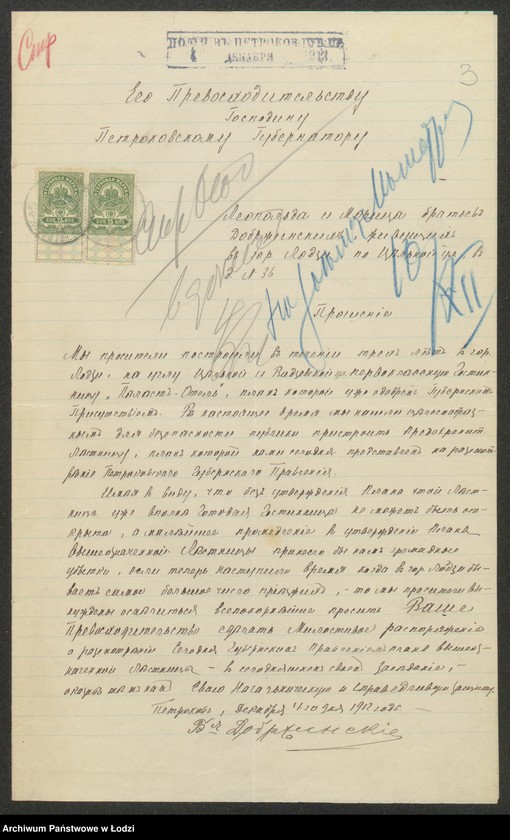 3
Его Превосходительству
Господину
Петроковскому Губернатору
Леопольда и Морица братьевъ
Добржинскихъ, живущихъ
въ гор. Лодзи по Цѣльной ул. въ
д. № 36
Прошеніе
Мы просители построили въ теченіи трехъ лѣтъ въ гор.
Лодзи, на углу Цѣльной и Видзевской ул. первоклассную Гостин-
ницу „Паластъ-Отель", планъ которой уже одобренъ Губернскимъ
Присутствіемъ. Въ настоящее время мы нашли цѣлесообраз-
нымъ для безопасности публики пристроить
лѣстницу, планъ которой нами сегодня представленъ на разсмот-
рѣніе Петроковскаго Губернскаго Правленія.
Имѣя въ виду, что безъ утвержденія плана этой лѣст-
ницы уже вполнѣ готовая Гостинница не можетъ быть от-
крыта, а малѣйшее промедленіе въ утвержденіи плана
вышеозначенной лѣстницы принесло бы намъ громадные
убытки, если теперь наступило время когда въ гор. Лодзи бы-
ваетъ самое большое число пріѣзжихъ, - то мы просители вы-
нуждены осмѣлиться всепокорнѣйше просить Ваше
Превосходительство сдѣлать Милостивое распоряженіе
о разсмотрѣніи Сегодня Губернскимъ Правленіемъ плана вышеоз-
наченной лѣстницы - въ сегодняшнемъ своемъ засѣданіи, -
оказавъ намъ Свою Начальническую и справедливую защиту.
Петроковъ, декабря 4го дня 1912 года. -
Бр. Добржинскіе
Archiwum Państwowe w Łodzi